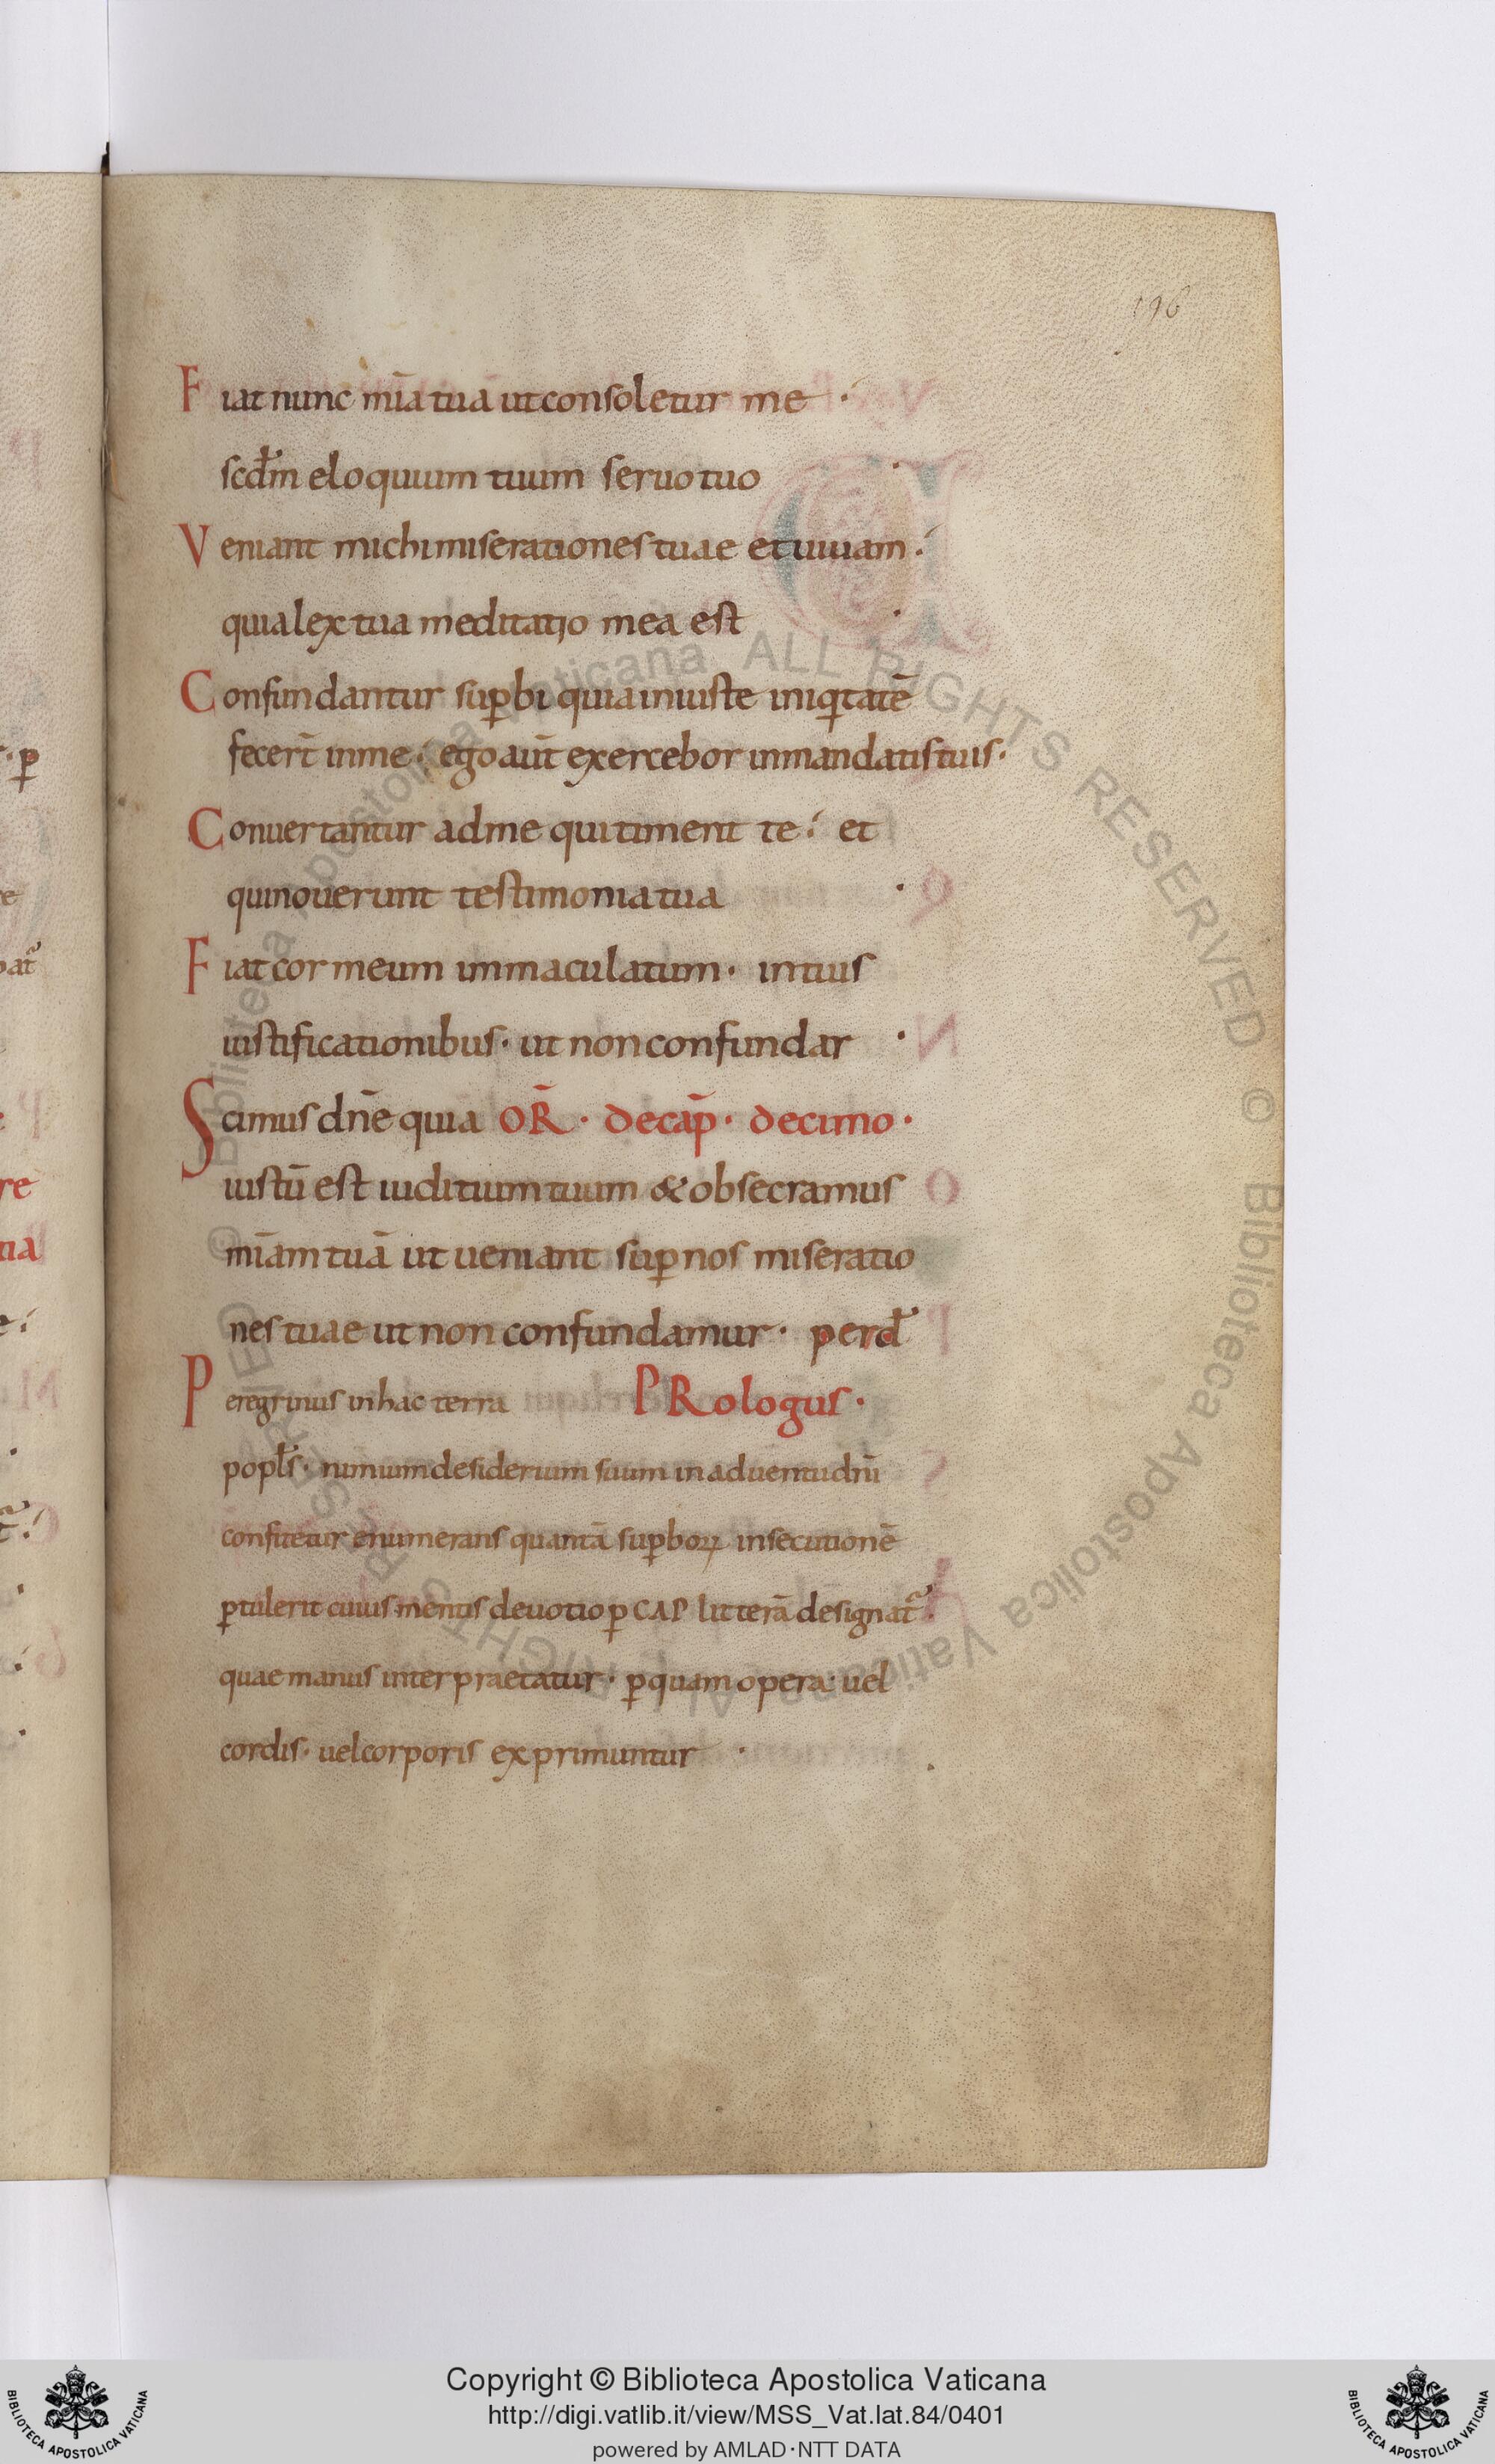 196
Fiat nunc mīa tua ut consoletur me ·
scđm eloquium tuum seruo tuo ·
Veniant michi miserationes tuae et uiuam ·
quia lex tua meditatio mea est ·
Confundantur suꝑbi quia iniuste iniqͥtatē
fecer̄t in me · ego aūt exercebor in mandatis tuis ·
Conuertantur ad me qui timent te · et
qui nouerunt testimonia tua ·
Fiat cor meum immaculatum · in tuis
iustificationibus · ut non confundar ·
Scimus dn̄e quia OR̄ · de cap̄ · decimo ·
iustū est iuditium tuum & obsecramus
mīam tuā ut ueniant suꝑ nos miseratio
nes tuae ut non confundamur · per đ
Peregrinus in hac terra PRologus ·
popl̄s · nimium desiderium suum in aduentu dn̄i
confitetur enumerans quantā suꝑboꝝ insecutionē
ꝑtulerit cuius mentis deuotio ꝑ CAP litterā designat᷑ ·
quae manus interpraetatur · ꝑ quam opera · uel
cordis · uel corporis exprimuntur ·
Copyright © Biblioteca Apostolica Vaticana
http://digi.vatlib.it/view/MSS_Vat.lat.84/0401
powered by AMLAD·NTT DATA